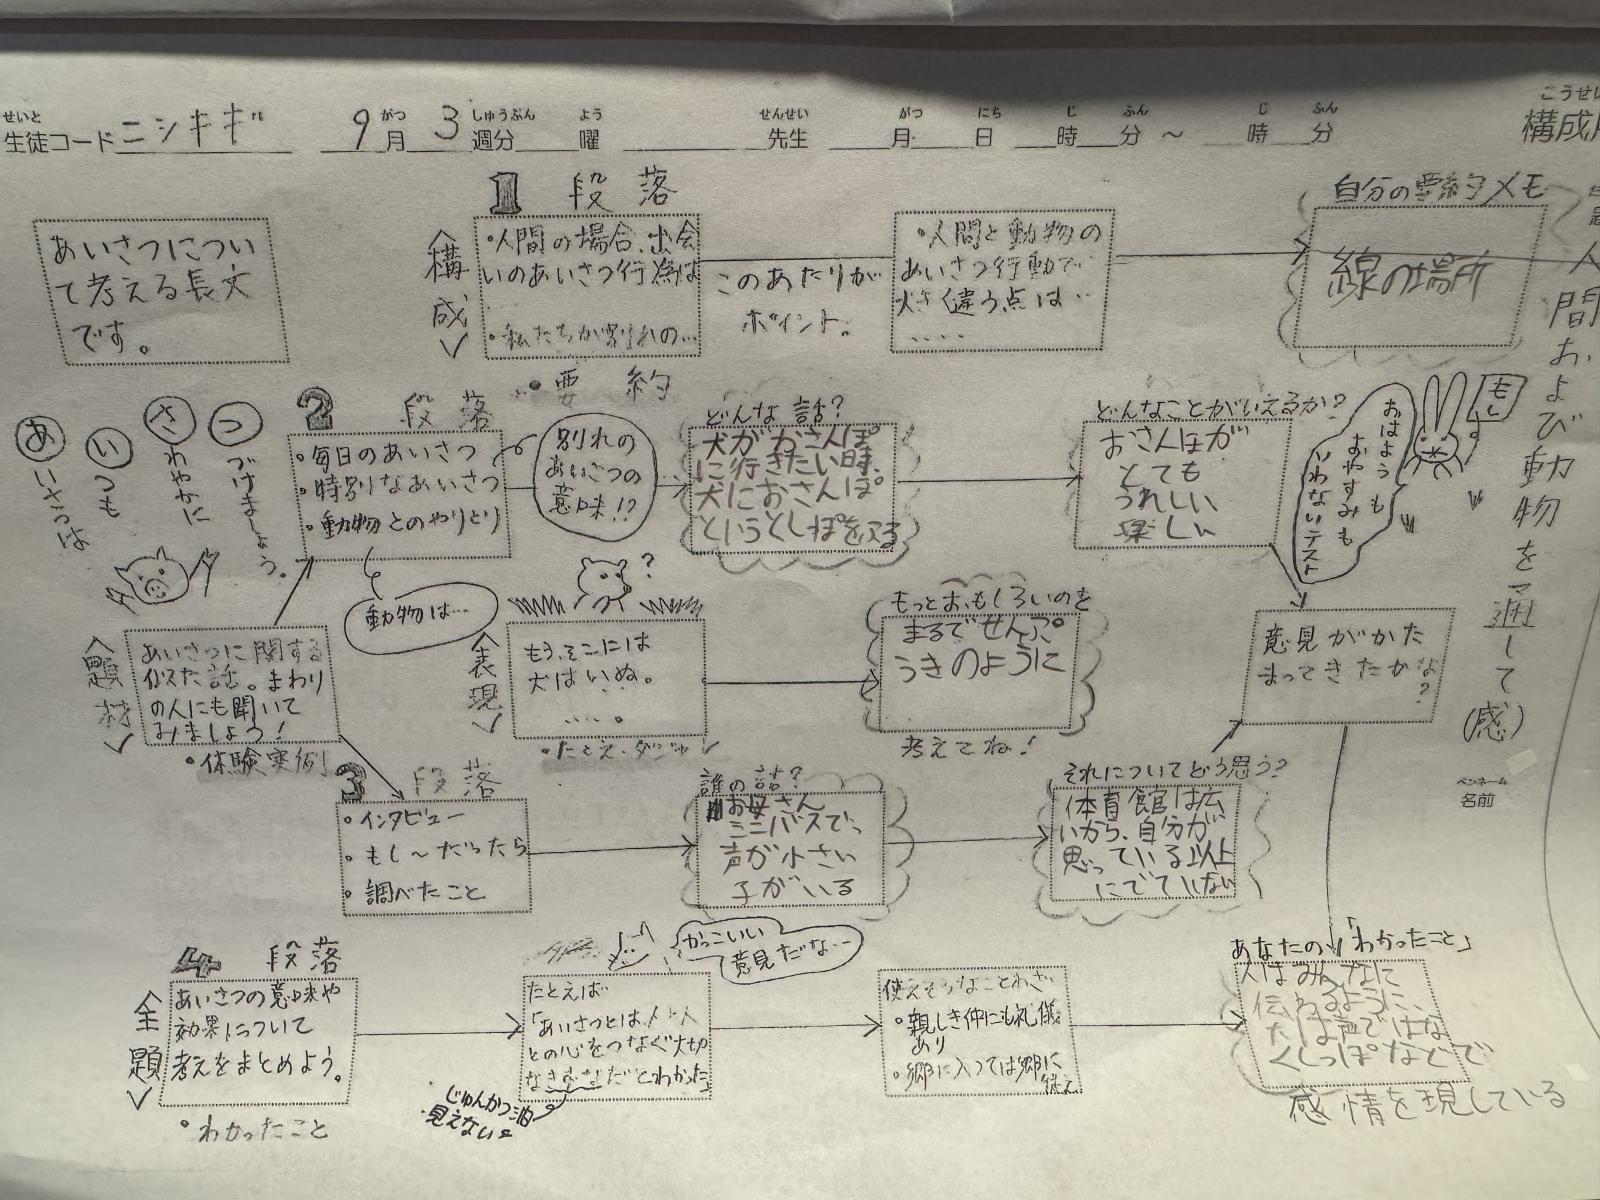 せいと
生徒コード ニシキギ 9月 3週分 曜 先生 月 日 時 分 ～ 時 分
がつ しゅうぶん よう せんせい がつ にち じ ふん じ ふん
こうせい
構成
あいさつについ
て考える長文
です。
1 段落
〈構成〉
・人間の場合、出会
いのあいさつ行為は
・私たちが別れの…
・要約
このあたりが
ポイント。
・人間と動物の
あいさつ行動で
大きく違う点は…
自分の要約メモ
線の場所
人間および動物を通して(感)
ペンネーム
名前
あいさつは
いつも
さわやかに
つづけましょう。
2 段落
・毎日のあいさつ
・特別なあいさつ
・動物とのやりとり
別れの
あいさつの
意味!?
動物は…
どんな話?
犬がおさんぽ
に行きたい時、
犬におさんぽ
というとしぽを
どんなことがいえるか?
おさんぽが
とても
うれしい
楽しい
おはようも
おやすみも
いわないテスト
もし
〈題材〉
あいさつに関する
似た話。まわり
の人にも聞いて
みましょう!
・体験実例
〈表現〉
?
もう、そこには
犬はいぬ。
・たとえ・ダジャレ
もっとおもしろいのを
まるでせんぷ
うきのように
考えてね!
意見がかた
まってきたかな?
3 段落
・インタビュー
・もし～だったら
・調べたこと
誰の話?
お母さん
ミニバスで、
声が小さい
子がいる
それについてどう思う?
体育館は広
いから、自分が
思っている以上
にでていない
4 段落
〈全題〉
あいさつの意味や
効果について
考えをまとめよう。
・わかったこと
かっこいい
意見だな…
たとえば
「あいさつとは、人と人
との心をつなぐ大切
なきずなだとわかった」
じゅんかつ油
見えない
使えそうなことわざ
・親しき仲にも礼儀
あり
・郷に入っては郷に
従え
あなたの「わかったこと」
人はみんなに
伝わるように、
犬は声ではな
くしっぽなどで
感情を現している